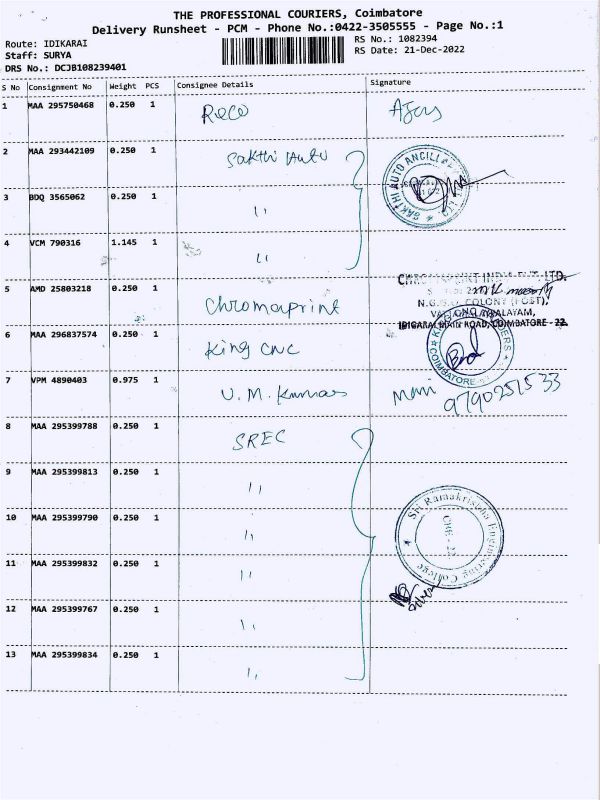 THE PROFESSIONAL COURIERS, Coimbatore
Delivery Runsheet - PCM - Phone No.:0422-3505555 - Page No.:1
Route: IDIKARAI
RS No.: 1082394
Staff: SURYA
RS Date: 21-Dec-2022
DRS No.: DCJB108239401
S No Consignment No Weight PCS Consignee Details Signature
1 MAA 295750468 0.250 1 Roco
2 MAA 293442109 0.250 1 Sakthi Auto
SAKTHI AUTO ANCILLARY LTD.
3 BDQ 3565062 0.250 1 ''
4 VCM 790316 1.145 1 ''
5 AMD 25803218 0.250 1 Chromaprint
N.G.G.O. COLONY (POST),
IDIGARAI MAIN ROAD, COIMBATORE - 22.
6 MAA 296837574 0.250 1 King CNC
COIMBATORE
7 VPM 4890403 0.975 1 U.M. Kumar Mani
9790251533
8 MAA 295399788 0.250 1 SREC
9 MAA 295399813 0.250 1 ''
10 MAA 295399790 0.250 1 ''
Sri Ramakrishna Engineering College
CBE - 22.
11 MAA 295399832 0.250 1 ''
12 MAA 295399767 0.250 1 ''
13 MAA 295399834 0.250 1 ''